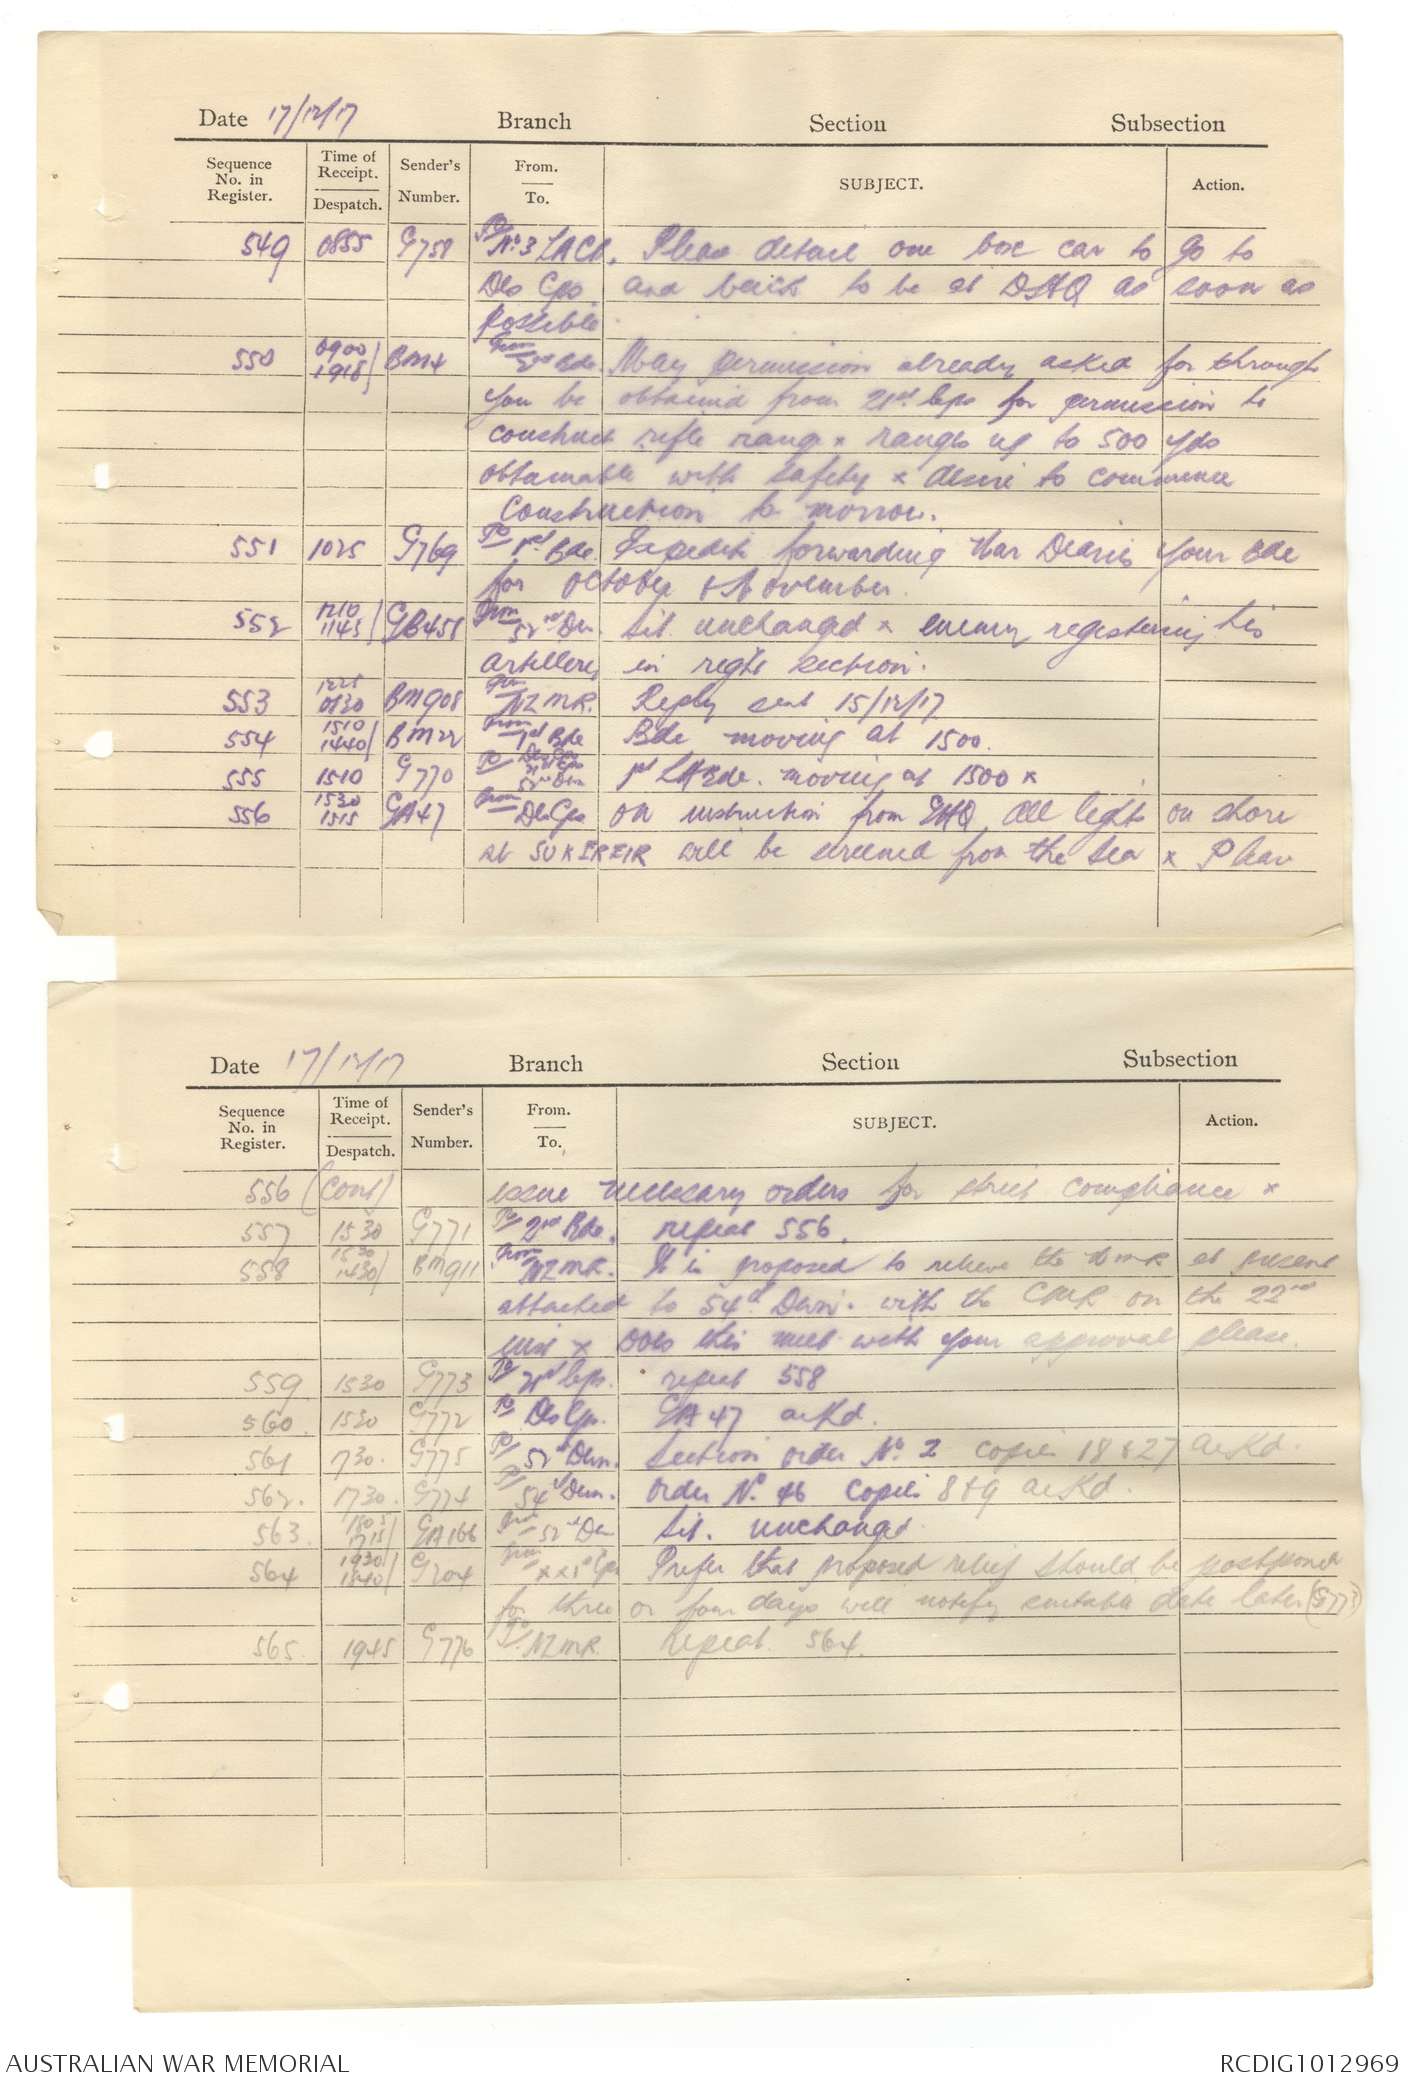 Date 17/12/17 Branch Section Subsection
Sequence No. in Register. Time of Receipt. Despatch. Sender's Number. From. To. SUBJECT. Action.
549 0855 G758 To No. 3 LACP. Please detail one box car to go to
Des Cps and back to be at DHQ as soon as
possible.
550 0900 1918 BM4 From 2nd Bde. May permission already asked for through
you be obtained from 21st Cps for permission to
construct rifle range x ranges up to 500 yds
obtainable with safety x desire to commence
construction to morrow.
551 1025 G769 To 1st Bde Expedite forwarding War Diaries your Bde
for October & November.
552 1210 1145 GB451 From 52nd Divn. Sit. unchanged x enemy registering his
artillery in right section.
553 1225 0830 BM908 From NZMR. Reply sent 15/12/17
554 1510 1440 BM22 From 1st Bde Bde moving at 1500.
555 1510 G770 To Des Cps 21st Cps 52nd Divn 1st LH Bde. moving at 1500 x
556 1530 1515 GA47 From Des Cps on instruction from GHQ all lights on shore
at SUKEREIR will be screened from the sea x Please
Date 17/12/17 Branch Section Subsection
Sequence No. in Register. Time of Receipt. Despatch. Sender's Number. From. To. SUBJECT. Action.
556 (Cont) issue necessary orders for strict compliance x
557 1530 G771 To 2nd Bde. repeat 556.
558 1530 1430 BM911 From NZMR. It is proposed to relieve the WMR at present
attached to 54th Divn. with the CMR on the 22nd
inst x Does this meet with your approval please.
559 1530 G773 To 21st Cps. repeat 558
560 1530 G772 To Des Cps. GA47 ackd.
561 1730. G775 To 52nd Divn. Section order No. 2 copies 18 & 27 ackd.
562. 1730. G774 To 54th Divn. Order No. 46 copies 8 & 9 ackd.
563. 1805 1715 GA166 From 52nd Divn Sit. unchanged.
564 1930 1840 G204 From XX1st Cps Prefer that proposed relief should be postponed
for three or four days will notify suitable date later (G773)
565. 1945 G776 To NZMR. Repeat 564.
AUSTRALIAN WAR MEMORIAL RCDIG1012969